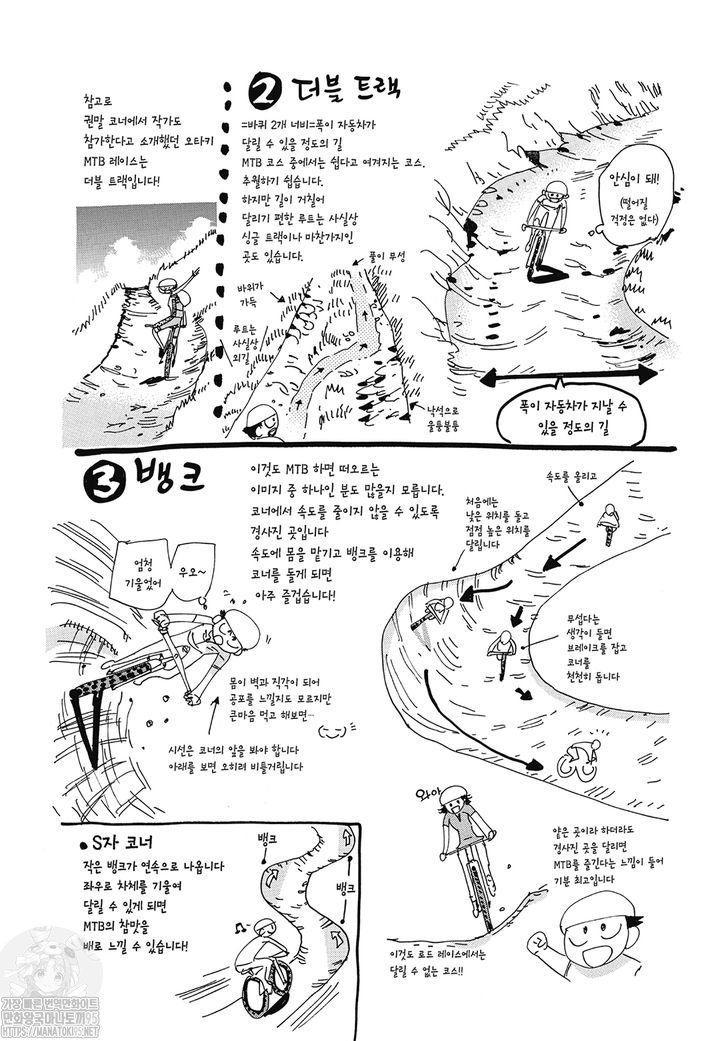 참고로
권말 코너에서 작가도
참가한다고 소개했던 오타키
MTB 레이스는
더블 트랙입니다!
② 더블 트랙
=바퀴 2개 너비=폭이 자동차가
달릴 수 있을 정도의 길
MTB 코스 중에서는 쉽다고 여겨지는 코스.
추월하기 쉽습니다.
하지만 길이 거칠어
달리기 편한 루트는 사실상
싱글 트랙이나 마찬가지인
곳도 있습니다.
안심이 돼!
(떨어질
걱정은 없다)
풀이 무성
바위가
가득
루트는
사실상
외길
낙석으로
울퉁불퉁
폭이 자동차가 지날 수
있을 정도의 길
③ 뱅크
이것도 MTB 하면 떠오르는
이미지 중 하나인 분도 많을지 모릅니다.
코너에서 속도를 줄이지 않을 수 있도록
경사진 곳입니다
속도에 몸을 맡기고 뱅크를 이용해
코너를 돌게 되면
아주 즐겁습니다!
속도를 올리고
처음에는
낮은 위치를 돌고
점점 높은 위치를
달립니다
엄청
기울었어
우오~
무섭다는
생각이 들면
브레이크를 잡고
코너를
천천히 돕니다
몸이 벽과 직각이 되어
공포를 느낄지도 모르지만
큰마음 먹고 해보면…
시선은 코너의 앞을 봐야 합니다
아래를 보면 오히려 비틀거립니다
와아
얕은 곳이라 하더라도
경사진 곳을 달리면
MTB를 즐긴다는 느낌이 들어
기분 최고입니다
이것도 로드 레이스에서는
달릴 수 없는 코스!!
• S자 코너
작은 뱅크가 연속으로 나옵니다
좌우로 차체를 기울여
달릴 수 있게 되면
MTB의 참맛을
배로 느낄 수 있습니다!
뱅크
뱅크
가장 빠른 번역만화사이트
만화왕국마나토끼95
HTTPS://MANATOKI95.NET